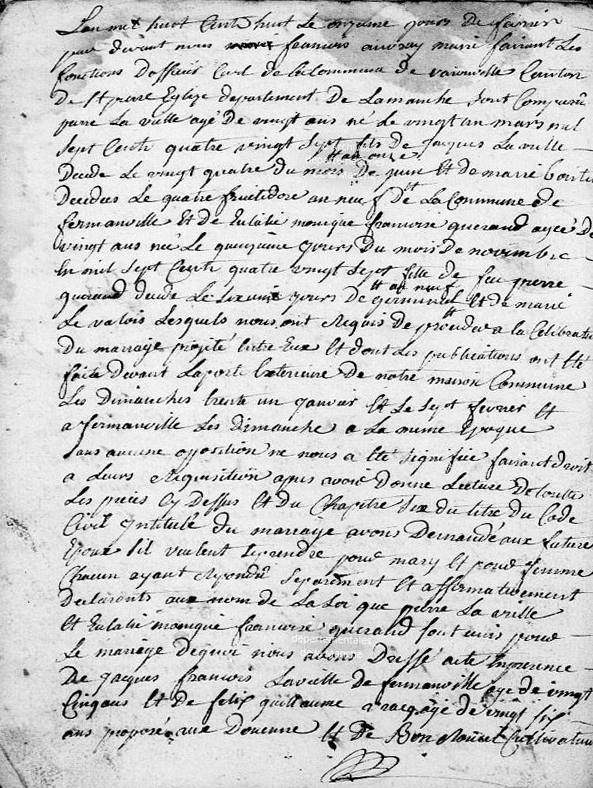 L'an mil huit Cents huit Le onzieme jours De favrier
par devant nous francois auvray maire faisant Les
fonctions Dofficier Civil de la Commune de varouville Canton
De St pierre Eglize departement De Lamanche sont Comparu
piere La valle agé De vingt ans né Le vingt un mars mil
sept Cents quatre vingt sept fils de Jacques Lavalle
Decede Le vingt quatre du mois De juin Et de marie
tt an onze
Decedees Le quatre fruitidore an neuf dtt De La Commune de
fermanville Et de Eulalie monique francoise querand ageé De
vingt ans née Le quinzieme jours Du mois De novembre
En mil sept Cents quatre vingt sept fille de feu pierre
querand decede Le sixieme jours De germinal tt an neuf Et de marie
Le valois Lesquels nous ont Requis De proceder a la Celebration
Du marriage projeté Entre Eux Et dont Les publications ont Eté
faite Devant La porte Exterieure De notre maison Commune
Les Dimanches trente un janvier Et Le sept fevrier Et
a fermanville Les Dimanche a La meme Epoque
sans aucune opposition ne nous a Eté signifiée faisant droit
a Leurs Requisition apres avoir Donne Lecture De toutes
Les pieces Cy Dessus Et du Chapitre six du titre Du Code
Civil Intitulé Du marriage avons Demandé aux future
Epoux s'il veulent se prendre pour mary Et pour femme
Chacun ayant Repondu Separement Et affirmativement
Declarons aux nom de La Loi que pierre La valle
Et Eulalie monique francoise querand sont unis pour
Le mariage Dequoi nous avons Dressé acte En presence
De Jacques francois Lavalle de fermanville age de vingt
Cinq ans Et de felix guillaume agé de vingt six
ans preposé aux Douenne Et De Bon Cultivateur
départementales